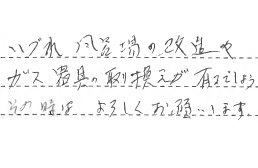 いづれ 風呂場の改造や
ガス器具の取り換えが有るでしょう
その時は よろしくお願いします。